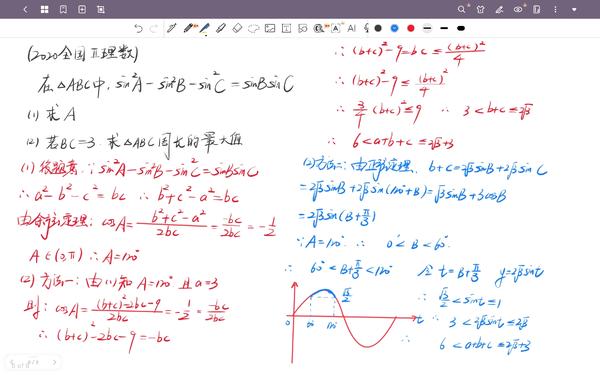 (2020全国Ⅱ理数)
在△ABC中, sin²A-sin²B-sin²C=sinBsinC
(1) 求A
(2) 若BC=3, 求△ABC周长的最大值
(1) 依题意: ∵sin²A-sin²B-sin²C=sinBsinC
∴a²-b²-c²=bc ∴b²+c²-a²=bc
由余弦定理: cosA=\frac{b²+c²-a²}{2bc}=\frac{-bc}{2bc}=-\frac{1}{2}
A∈(0,π) ∴A=120°
(2) 方法一: 由(1)知 A=120° 且a=3
则: cosA=\frac{(b+c)²-2bc-9}{2bc}=-\frac{1}{2}=\frac{-bc}{2bc}
∴(b+c)²-2bc-9=-bc
∴(b+c)²-9=bc≤\frac{(b+c)²}{4}
∴(b+c)²-9≤\frac{(b+c)²}{4}
∴\frac{3}{4}(b+c)²≤9 ∴3<b+c≤2√3
∴6<a+b+c≤2√3+3
(2) 方法二: 由正弦定理, b+c=2√3sinB+2√3sinC
=2√3sinB+2√3sin(120°+B)=√3sinB+3cosB
=2√3sin(B+\frac{π}{3})
∵A=120° ∴0°<B<60°
∴60°<B+\frac{π}{3}<120° 令t=B+\frac{π}{3} y=2√3sint
∴\frac{√3}{2}<sint≤1
∴3<2√3sint≤2√3
∴6<a+b+c≤2√3+3
\frac{√3}{2}
0 60° 120° t